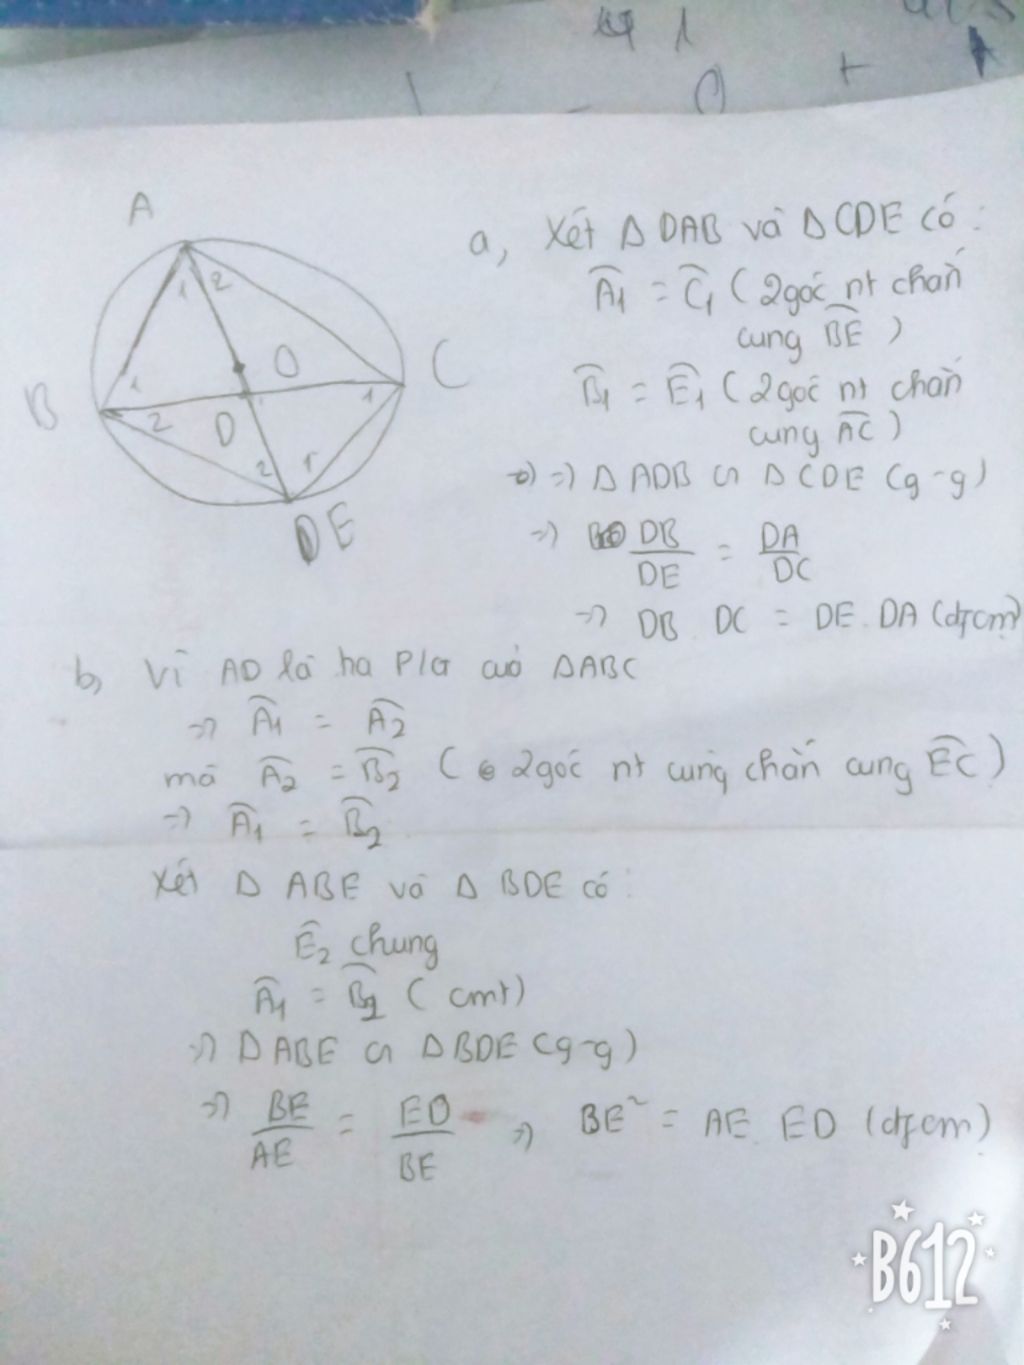 A
1
2
B
1
2
O
D
1
C
2
1
DE
a, Xét Δ DAB và Δ CDE có:
Â1 = Ĉ1 (2góc nt chắn
cung BE)
B̂1 = Ê1 (2góc nt chắn
cung AC)
=) Δ ADB ∽ Δ CDE (g-g)
=) DB/DE = DA/DC
=) DB DC = DE. DA (đfcm)
b, Vì AD là tia P/G của ΔABC
=) Â1 = Â2
mà Â2 = B̂2 (2góc nt cùng chắn cung EC)
=) Â1 = B̂2
Xét Δ ABE và Δ BDE có:
Ê2 chung
Â1 = B̂2 (cmt)
=) ΔABE ∽ ΔBDE (g-g)
=) BE/AE = ED/BE =) BE² = AE. ED (đfcm)
B612